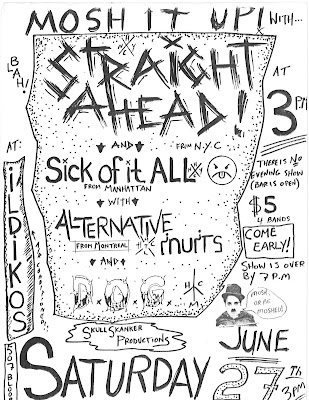 MOSH IT UP! WITH...
BLAH!
STRAIGHT
AHEAD!
AT
3 PM
AND
FROM N.Y.C
Sick of it ALL
FROM MANHATTAN
WITH
ALTERNATIVE
FROM MONTREAL
FRUITS
AND
D.O.G.
H
C
M
SKULLSKANKER
PRODUCTIONS
AT:
iLDIKOS
AIR CONDITIONED!
507 BLOOR
THERE IS NO
EVENING SHOW
(BAR IS OPEN)
$5
4 BANDS
COME
EARLY!
SHOW IS OVER
BY 7 P.M
MOSH
OR BE
MOSHED!
JUNE
SATURDAY
27TH
3PM